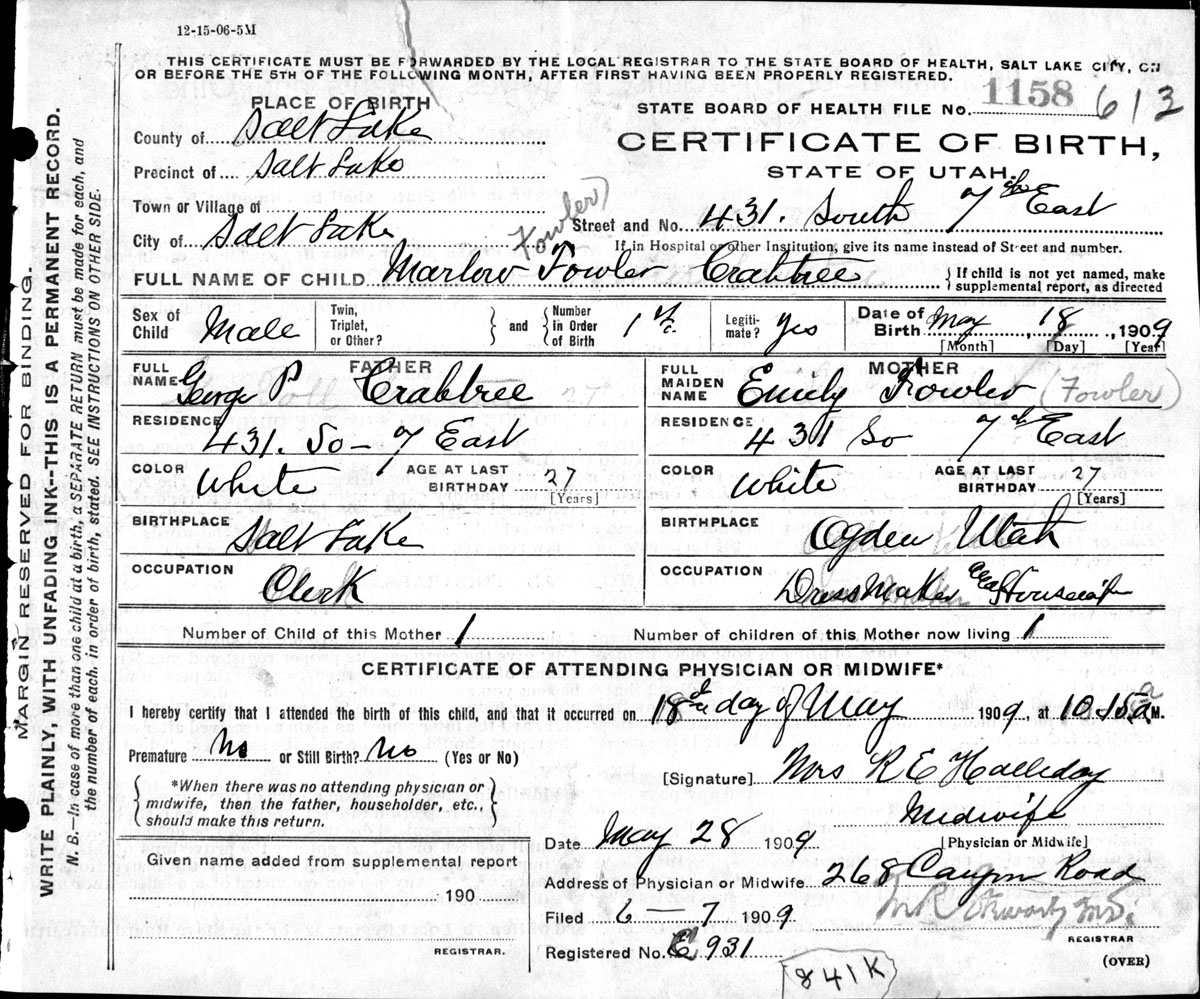 12-15-06-5M
THIS CERTIFICATE MUST BE FORWARDED BY THE LOCAL REGISTRAR TO THE STATE BOARD OF HEALTH, SALT LAKE CITY, ON
OR BEFORE THE 5TH OF THE FOLLOWING MONTH, AFTER FIRST HAVING BEEN PROPERLY REGISTERED.
MARGIN RESERVED FOR BINDING.
WRITE PLAINLY, WITH UNFADING INK—THIS IS A PERMANENT RECORD.
N. B.—In case of more than one child at a birth, a SEPARATE RETURN must be made for each, and
the number of each. in order of birth, stated. SEE INSTRUCTIONS ON OTHER SIDE.
PLACE OF BIRTH
STATE BOARD OF HEALTH FILE No. 1158 613
County of Salt Lake
CERTIFICATE OF BIRTH,
Precinct of Salt Lake
STATE OF UTAH.
Town or Village of
Street and No. 431. South 7th East
City of Salt Lake
If in Hospital or other Institution, give its name instead of Street and number.
Fowler)
FULL NAME OF CHILD Marlow Fowler Crabtree
If child is not yet named, make
supplemental report, as directed
Sex of Child Male
Twin, Triplet, or Other?
and
Number in Order of Birth 1st
Legiti-mate? Yes
Date of Birth May 18, 1909
[Month] [Day] [Year]
FATHER
FULL NAME George P Crabtree
RESIDENCE 431. So - 7 East
COLOR White
AGE AT LAST BIRTHDAY 27
[Years]
BIRTHPLACE Salt Lake
OCCUPATION Clerk
MOTHER
FULL MAIDEN NAME Emily Fowler (Fowler)
RESIDENCE 431 So 7th East
COLOR White
AGE AT LAST BIRTHDAY 27
[Years]
BIRTHPLACE Ogden Utah
OCCUPATION Dress Maker Housewife
Number of Child of this Mother 1
Number of children of this Mother now living 1
CERTIFICATE OF ATTENDING PHYSICIAN OR MIDWIFE*
I hereby certify that I attended the birth of this child, and that it occurred on 18th day of May 1909, at 10.15 a M.
Premature No or Still Birth? No (Yes or No)
[Signature] Mrs R E Halliday
*When there was no attending physician or
midwife, then the father, householder, etc.,
should make this return.
Midwife
[Physician or Midwife]
Date May 28 1909
Given name added from supplemental report
190
REGISTRAR.
Address of Physician or Midwife 268 Canyon Road
Filed 6 — 7 1909
REGISTRAR
Registered No. E 931
(OVER)
841K